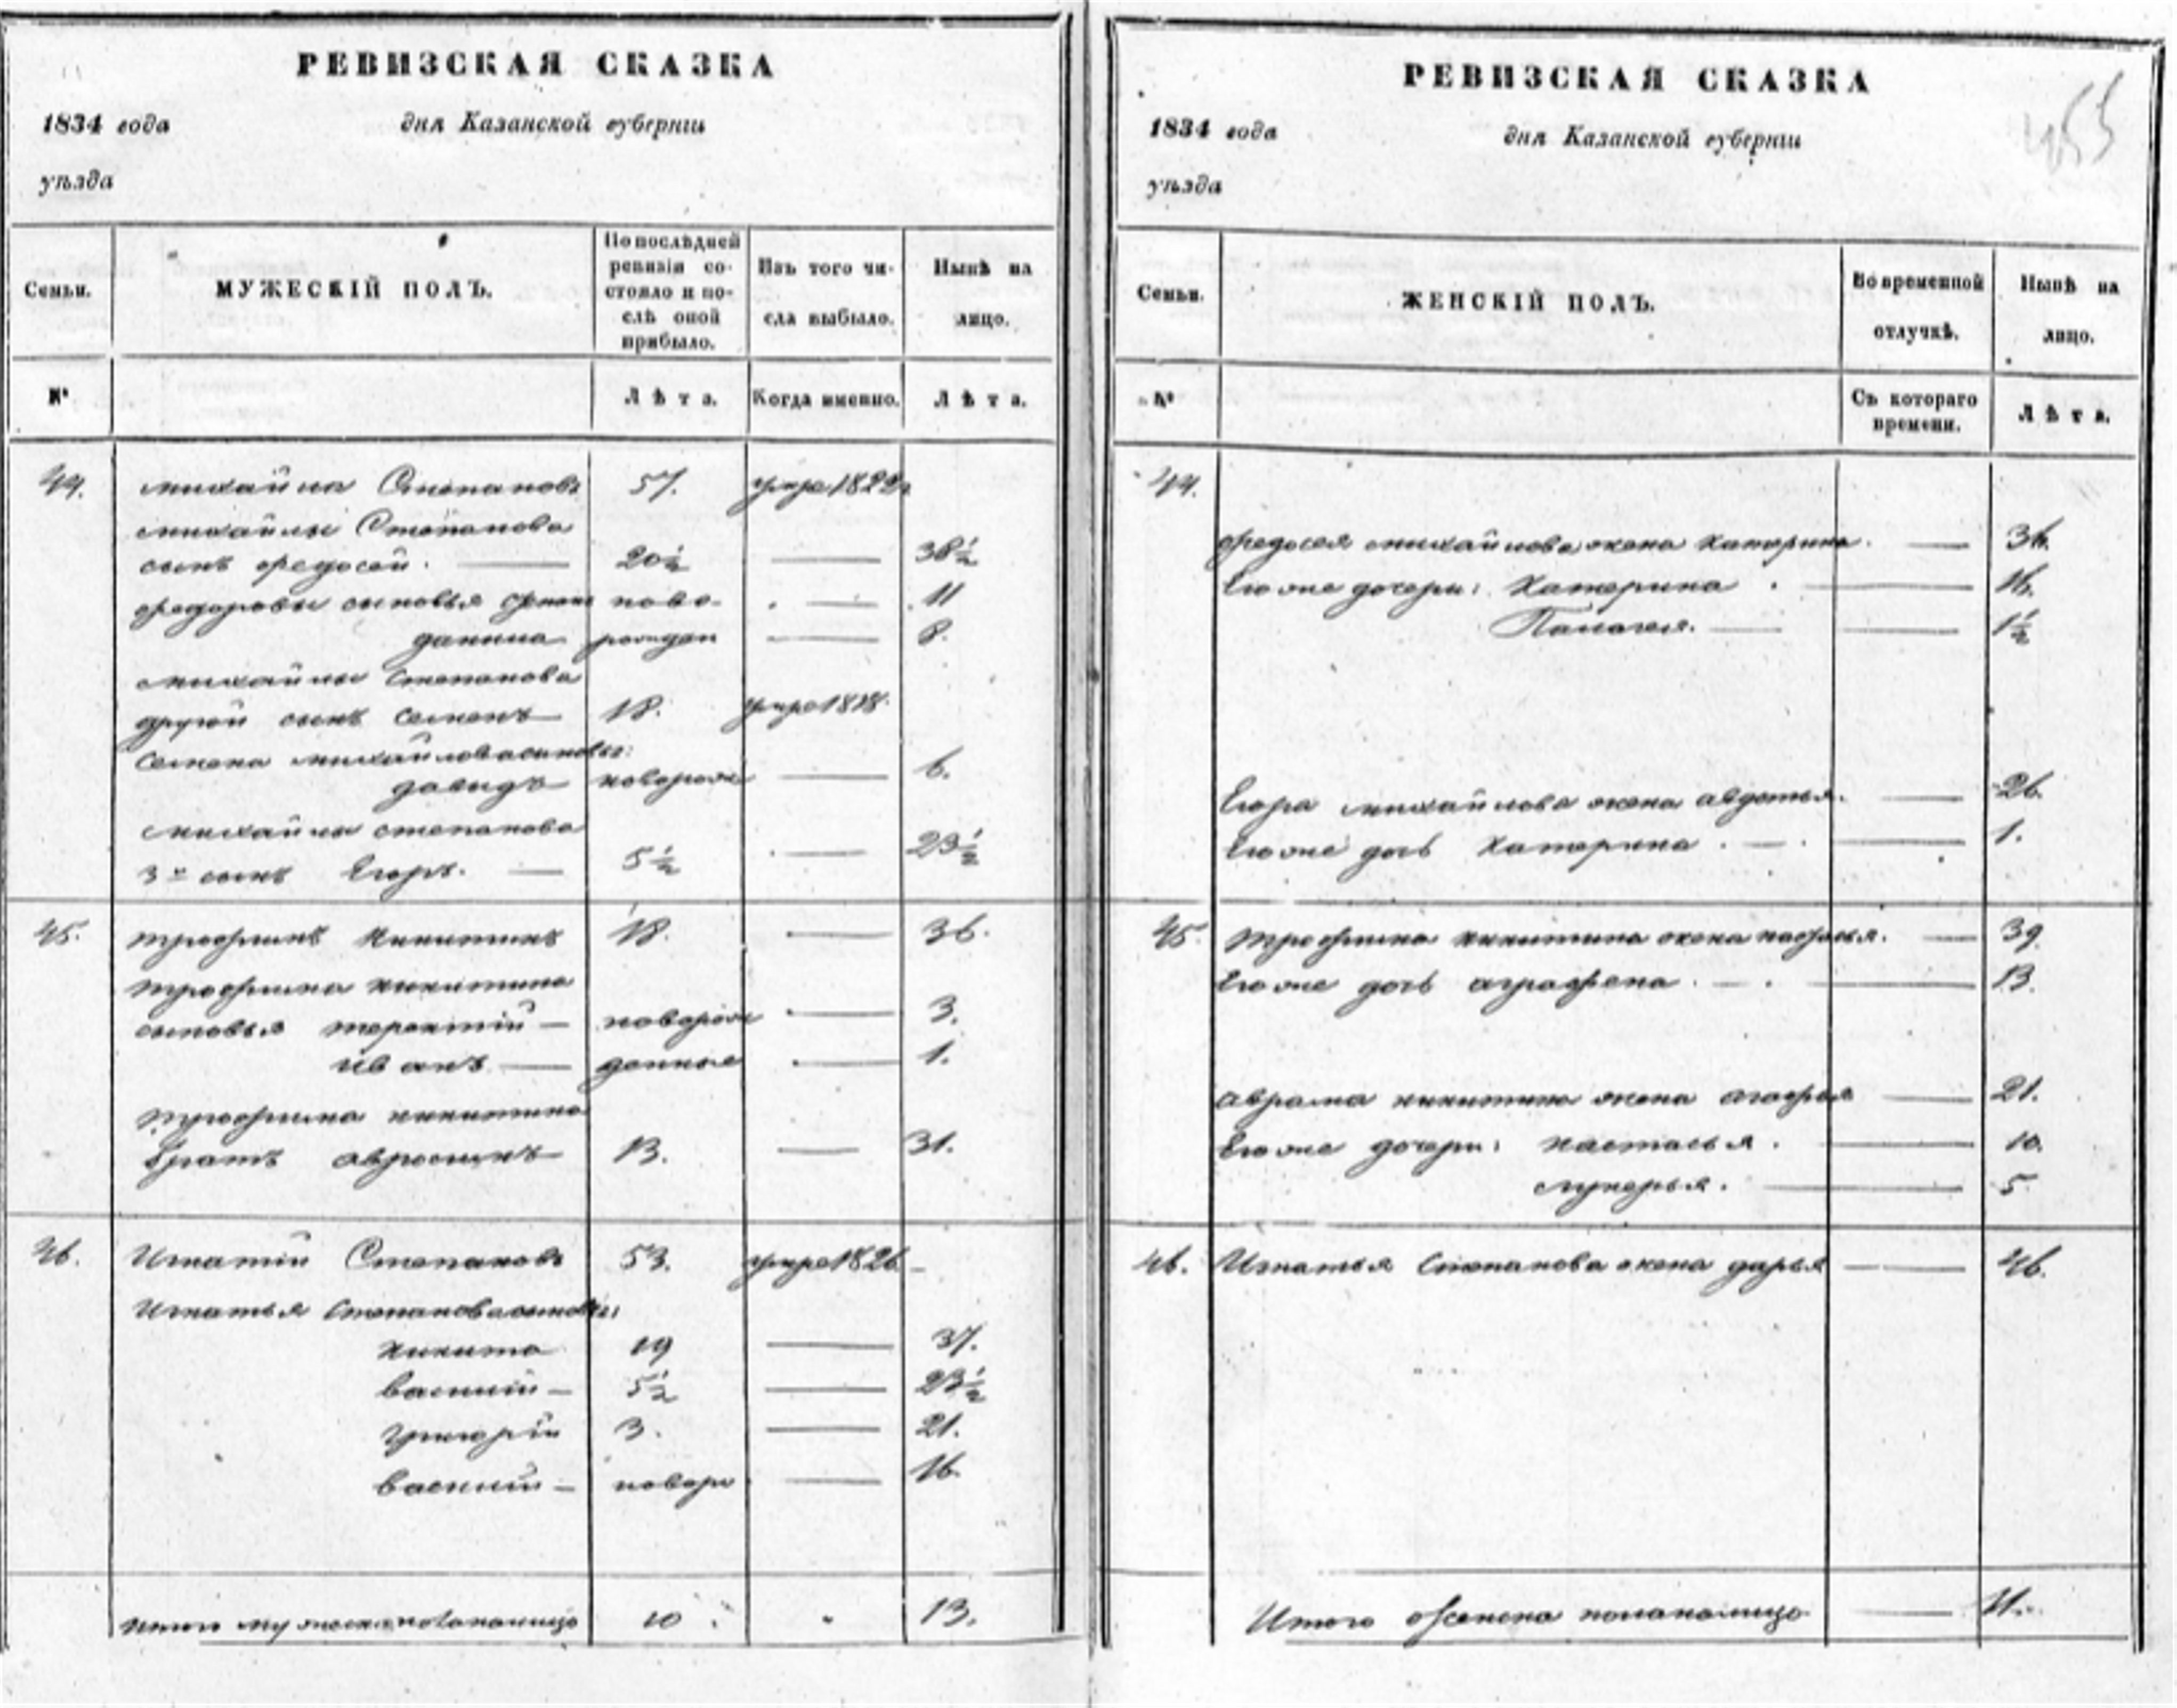 РЕВИЗСКАЯ СКАЗКА
1834 года дня Казанской губерніи
уѣзда
Семьи. МУЖЕСКІЙ ПОЛЪ. По послѣдней ревизіи состояло и послѣ оной прибыло. Изъ того числа выбыло. Нынѣ на лицо.
№ Лѣта. Когда именно. Лѣта.
44. михайла Степановъ 57. умре 1822
михайлы Степанова
сынъ федосей. 20½ — 38½
сыновья ново- — 11
данила рожден — 8.
михайлы степанова
другой сынъ семенъ 18. умре 1828.
семена михайлова сыновья:
давидъ новорож — 6.
михайлы степанова
3й сынъ Егоръ. 5½ — 23½
45. трофимъ никитинъ 18. — 36.
трофима никитина
сыновья терентій — новорож — 3.
иванъ — данные — 1.
трофима никитина
братъ 13. — 31.
46. Игнатій Степановъ 53. умре 1826
Игнатья Степанова сыновья:
никита 19 — 37.
василій — 5½ — 23½
григорій 3. — 21.
василій — новоро — 16.
Итого мужеска пола на лицо 10 13.
РЕВИЗСКАЯ СКАЗКА
455
1834 года дня Казанской губерніи
уѣзда
Семьи. ЖЕНСКІЙ ПОЛЪ. Во временной отлучкѣ. Нынѣ на лицо.
№ Съ котораго времени. Лѣта.
44.
федосея михайлова жена катерина. — 36.
Его же дочери: Катерина — 16.
Палагея. — 1½
Егора михайлова жена авдотья. — 26.
Его же дочь Катерина. — 1.
45. трофима никитина жена — 39.
Его же дочь аграфена — 13.
аврама никитина жена агафья — 21.
Его же дочери: настасья. — 10.
лукерья. — 5
46. Игнатья Степанова жена дарья — 46.
Итого женска пола на лицо — 11.